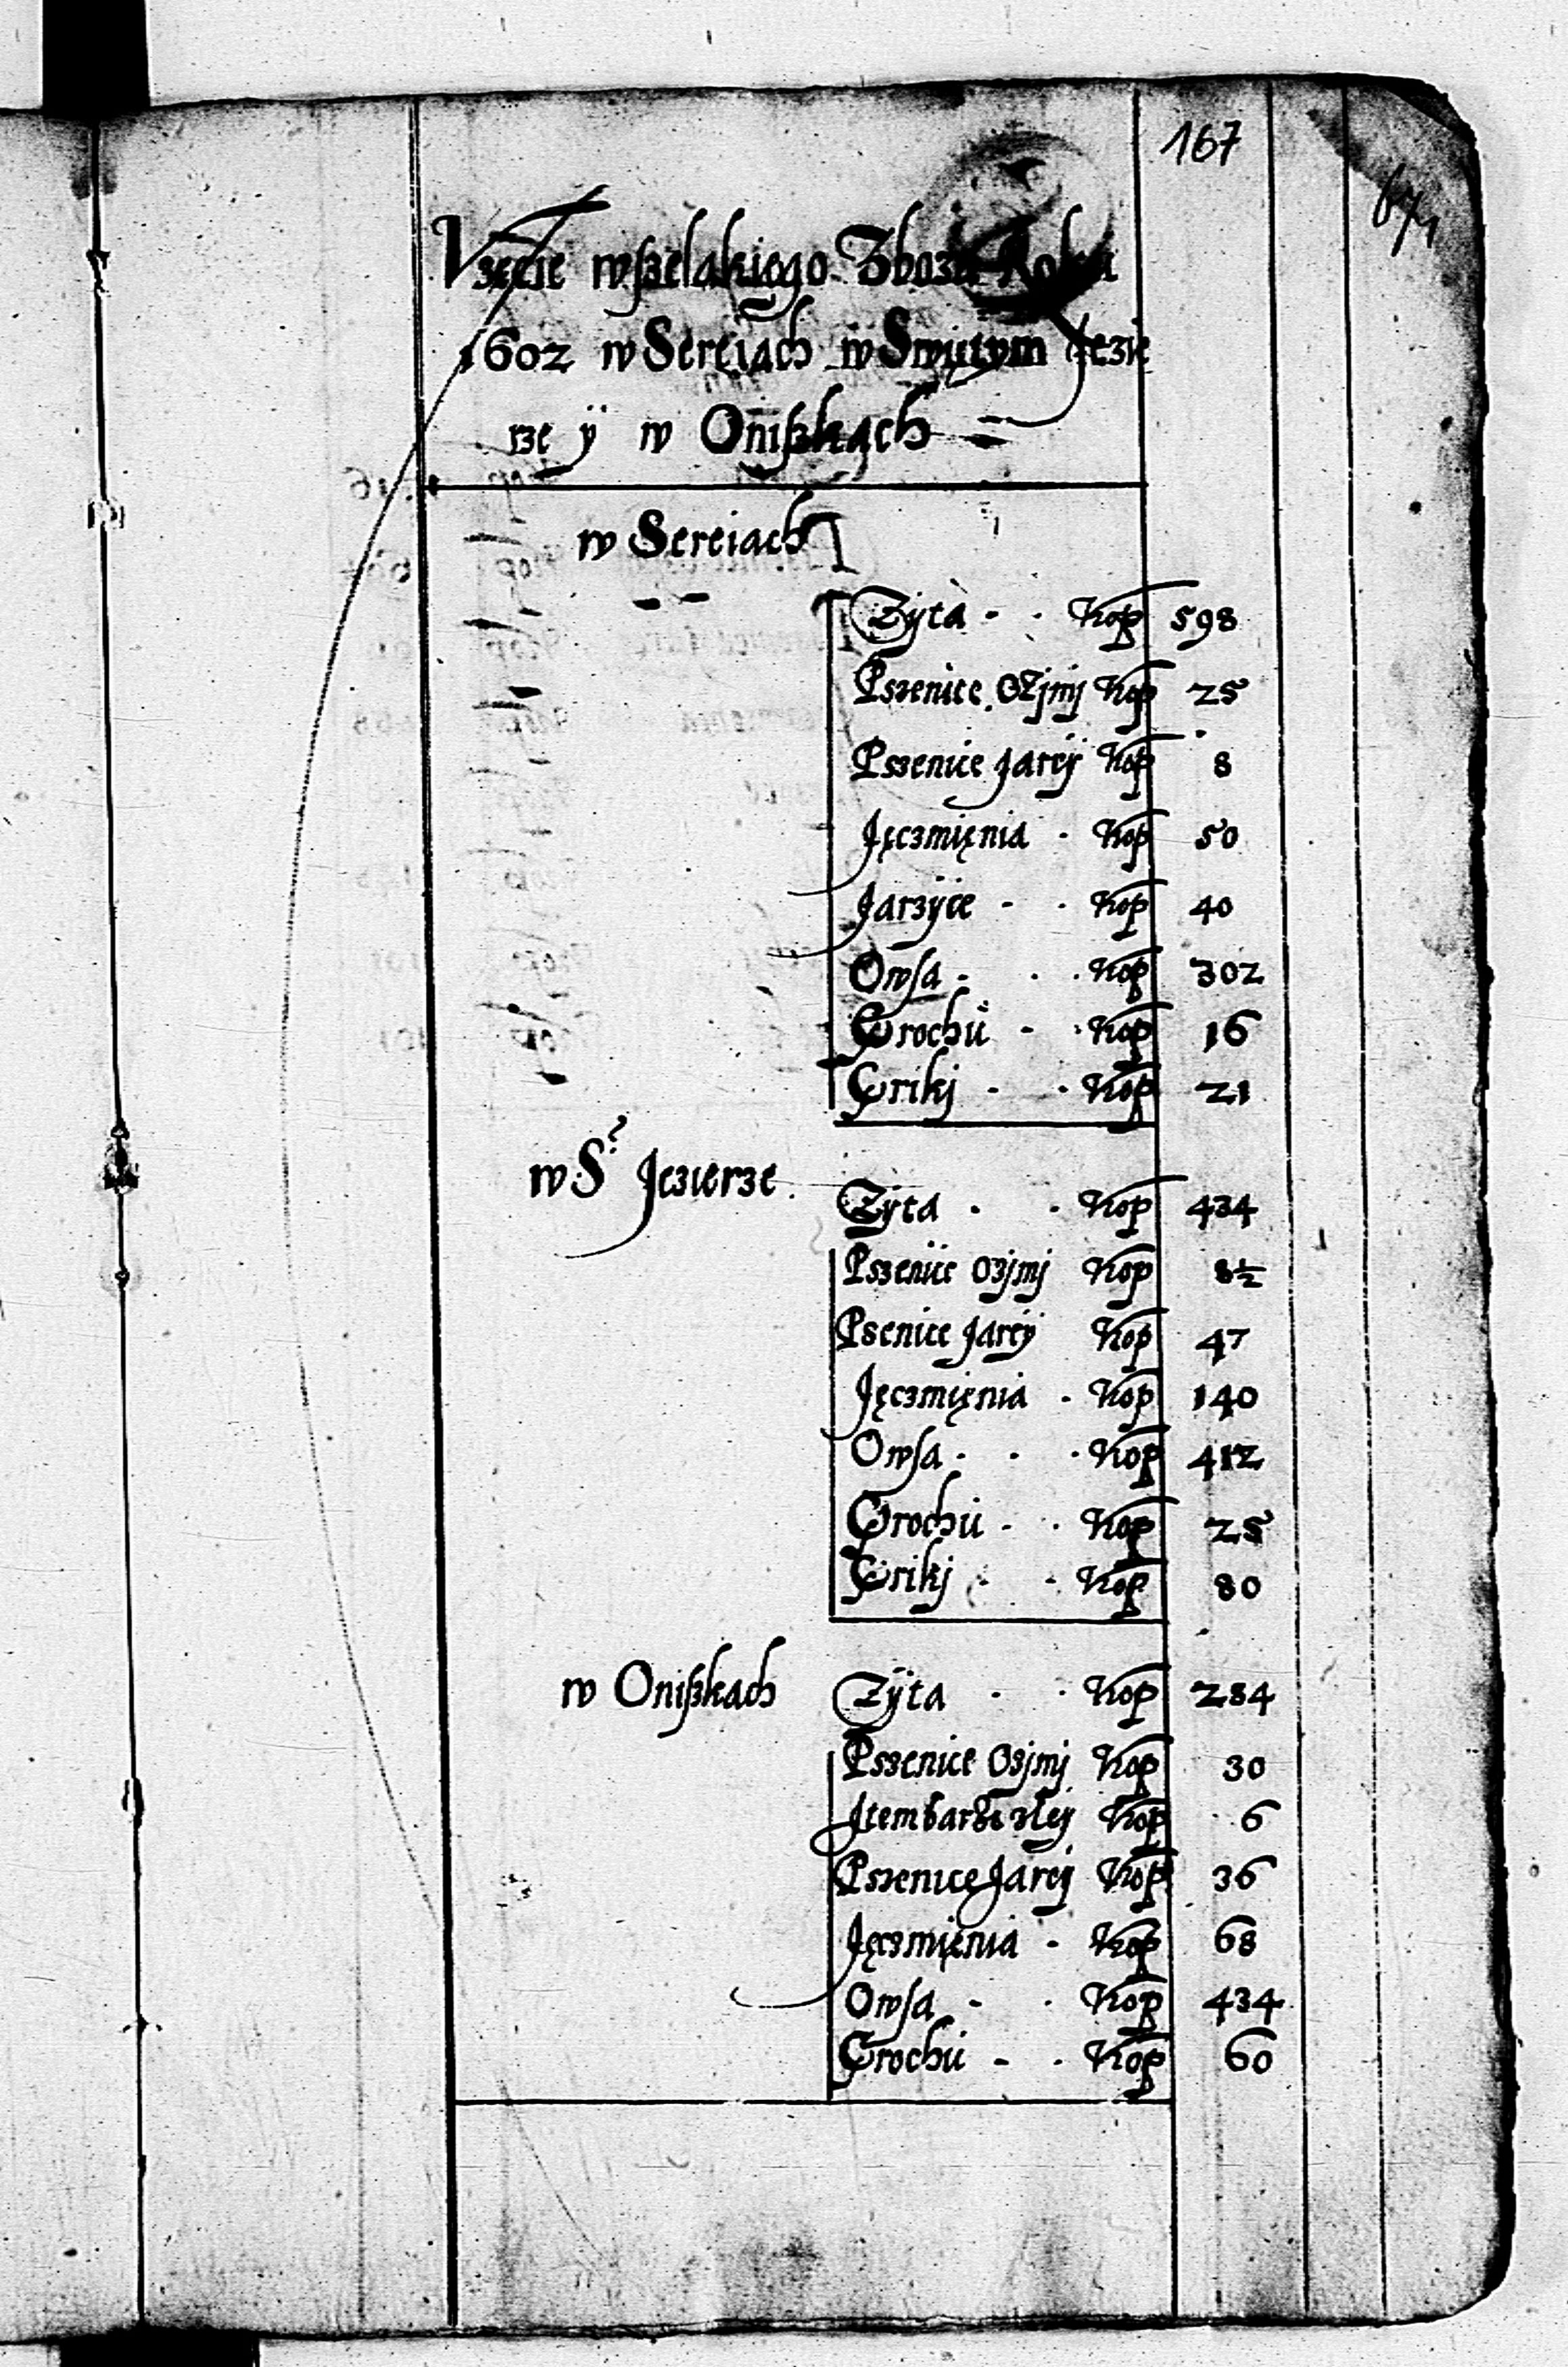 167
671
Vzęcie wszelakiego Zboza Roku
1602 w Sereiach w Swiętym Jezie
rze ÿ w Oniszkach
w Sereiach
Zÿta - - Kop 598
Pszenice Ozjmj Kop 25
Pszenice Jareÿ Kop 8
Jęczmięnia - Kop 50
Jarzÿce - - Kop 40
Owsa - - Kop 302
Grochu - - Kop 16
Griki - - Kop 21
w S° Jezierze.
Zÿta - - Kop 434
Pszenice Ozjmj Kop 8½
Psenice Jareÿ Kop 47
Jęczmięnia - Kop 140
Owsa - - Kop 412
Grochu - - Kop 25
Griki - - Kop 80
w Oniszkach
Zÿta - - Kop 284
Pszenice Ozjmj Kop 30
Item barzo złej Kop 6
Pszenice Jarej Kop 36
Jęczmięnia - Kop 68
Owsa - - Kop 434
Grochu - - Kop 60